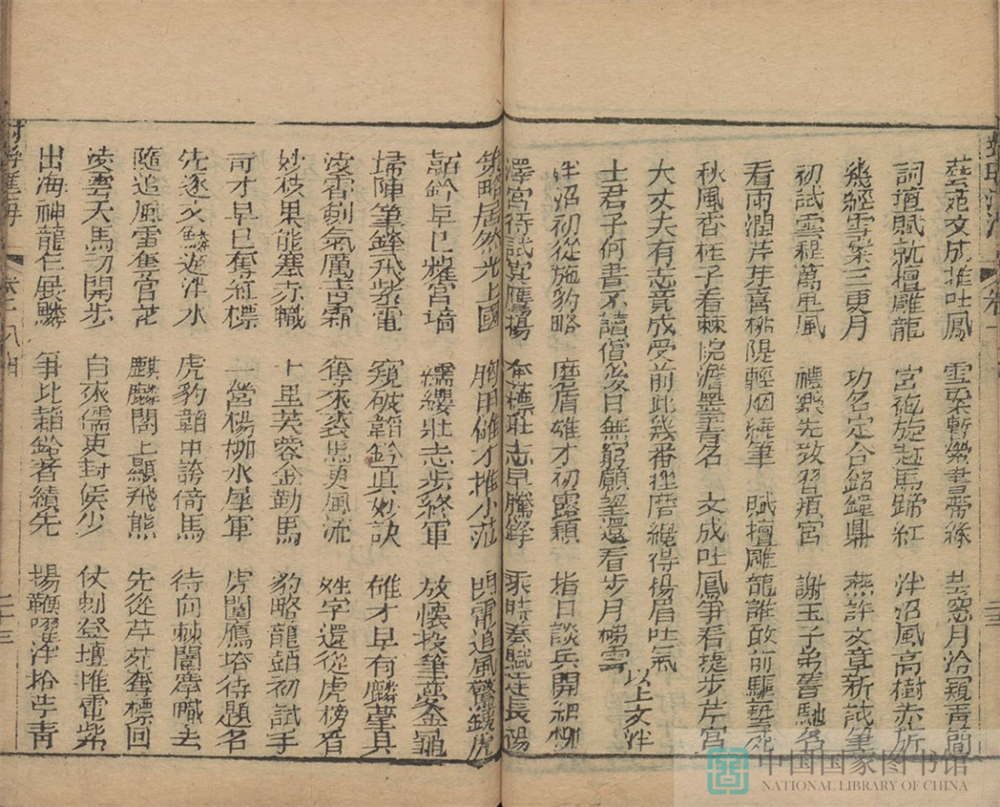 藝苑文成推吐鳳　雪案暫勞
詞壇賦就擅雕龍　宮袍旋赴馬蹄紅　泮沼風高樹赤斾
幾經雪案三更月　功名定合銘鐘鼎　燕許文章新試筆
初試雲程萬里風　禮樂先教習頖宮　謝玉子弟舊馳名
看雨潤芹芽喜桃隄輕烟　筆　賦檀雕龍誰敢前驅藝苑
秋風香桂子看棘院濃墨書名　文成吐鳳爭看捷步芹宮
大丈夫有志竟成受前此幾番挫磨纔得揚眉吐氣
士君子何書不讀償後日無窮願望還看步月梯雲
以上文泮
泮沼初從施豹略　磨盾雄才初露穎　指日談兵開細柳
澤宮待試冀鷹揚　壯志早騰鋒　乘時奏賦進長楊
策略居然光上國　胸中碓才推小范　追風驚
韜鈐早已耀宮墻　纓壯志步終軍　放懷投筆夢金龜
掃陣筆鋒飛紫電　窺破韜鈐真妙訣　碓才早有麟臺真
凌霄劍氣厲青霜　衣馬更風流　姓字還從虎榜看
妙枝果能塞赤幟　十里芙蓉金勒馬　豹略龍韜初試手
奇才早已奪紅標　一營楊柳水犀軍　虎闈鴈塔待題名
先逐文鱗遊泮水　虎豹韜中誇倚馬　待向棘闈搴幟去
隨追風雷奪宮花　麒麟閣上顯飛熊　先從草苑奪標回
凌雲天馬初開步　自來儒吏封侯少　仗劍登壇推電紫
出海神龍乍展鱗　爭比韜鈐著績先　揚鞭躍泮拾芹青
中国国家图书馆
NATIONAL LIBRARY OF CHINA